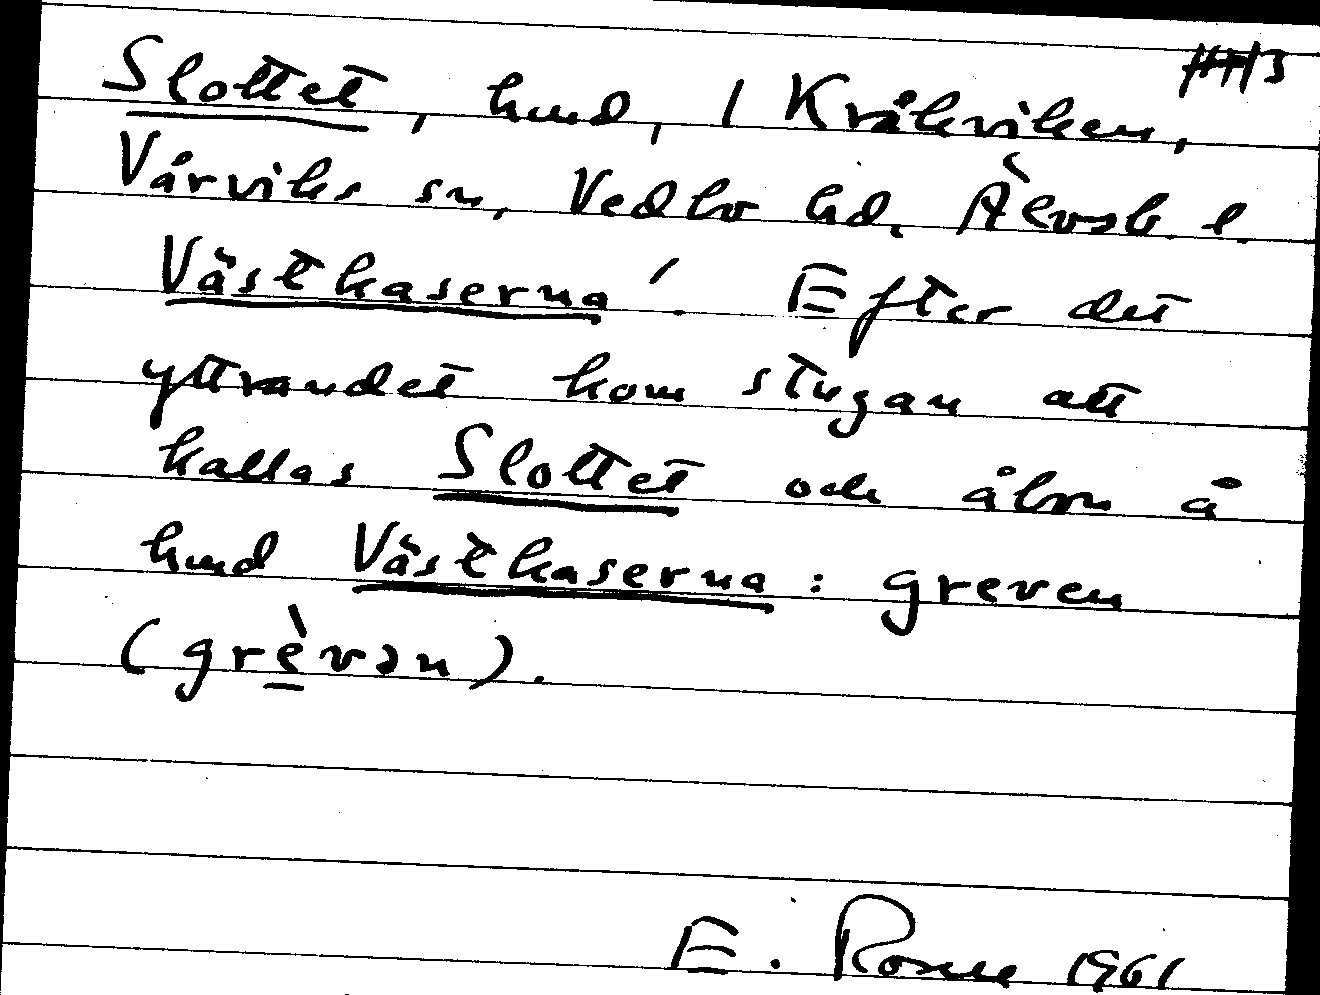 Slottet, hmd, 1 Kråkviken,
Vårviks sn, Vedbo hd, Älvsb. l.
Västkaserna'. Efter det
yttrandet kom stugan att
kallas Slottet och
hmd Västkaserna: greven
(grèvən).
E. 1961